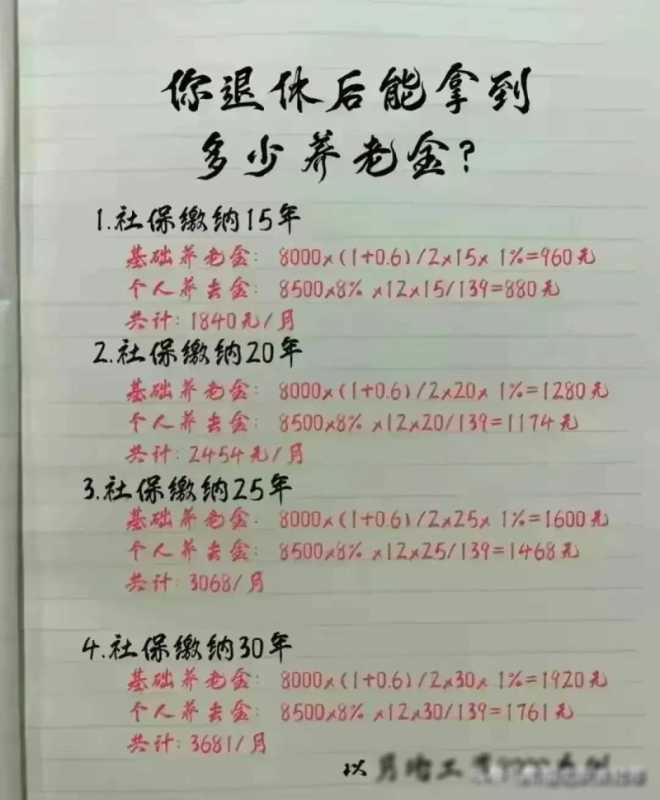 你退休后能拿到
多少养老金?
1.社保缴纳15年
基础养老金: 8000×(1+0.6)/2×15×1%=960元
个人养老金: 8500×8%×12×15/139=880元
共计:1840元/月
2.社保缴纳20年
基础养老金: 8000×(1+0.6)/2×20×1%=1280元
个人养老金: 8500×8%×12×20/139=1174元
共计:2454元/月
3.社保缴纳25年
基础养老金: 8000×(1+0.6)/2×25×1%=1600元
个人养老金: 8500×8%×12×25/139=1468元
共计:3068/月
4.社保缴纳30年
基础养老金: 8000×(1+0.6)/2×30×1%=1920元
个人养老金: 8500×8%×12×30/139=1761元
共计:3681/月
以